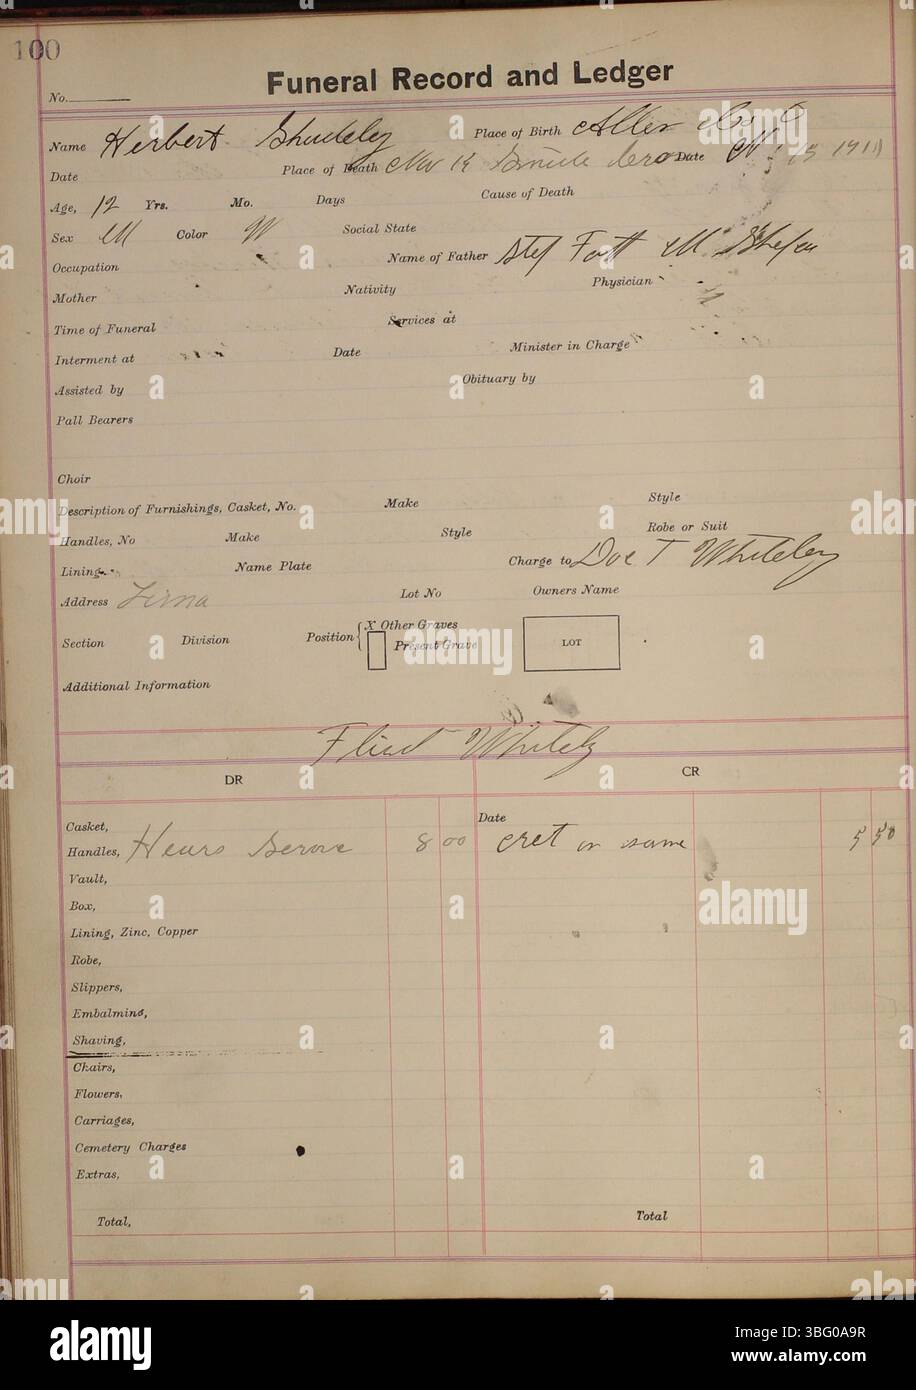 100
Funeral Record and Ledger
No.
Name Herbert Place of Birth Allen Co O
Date Place of Death Nov 14 Date 15 1911
Age, 12 Yrs. Mo. Days Cause of Death
Sex M Color W Social State
Occupation Name of Father M
Mother Nativity Physician
Time of Funeral Services at
Interment at Date Minister in Charge
Assisted by Obituary by
Pall Bearers
Choir
Description of Furnishings, Casket, No. Make Style
Handles, No Make Style Robe or Suit
Lining Name Plate Charge to T Whiteley
Address Lima Lot No Owners Name
Section Division Position X Other Graves Present Grave LOT
Additional Information
DR CR
Casket, Date
Handles, 8 00 on same 5 50
Vault,
Box,
Lining, Zinc, Copper
Robe,
Slippers,
Embalming,
Shaving,
Chairs,
Flowers,
Carriages,
Cemetery Charges
Extras,
Total, Total
alamy
Image ID: 3BG0A9R
www.alamy.com